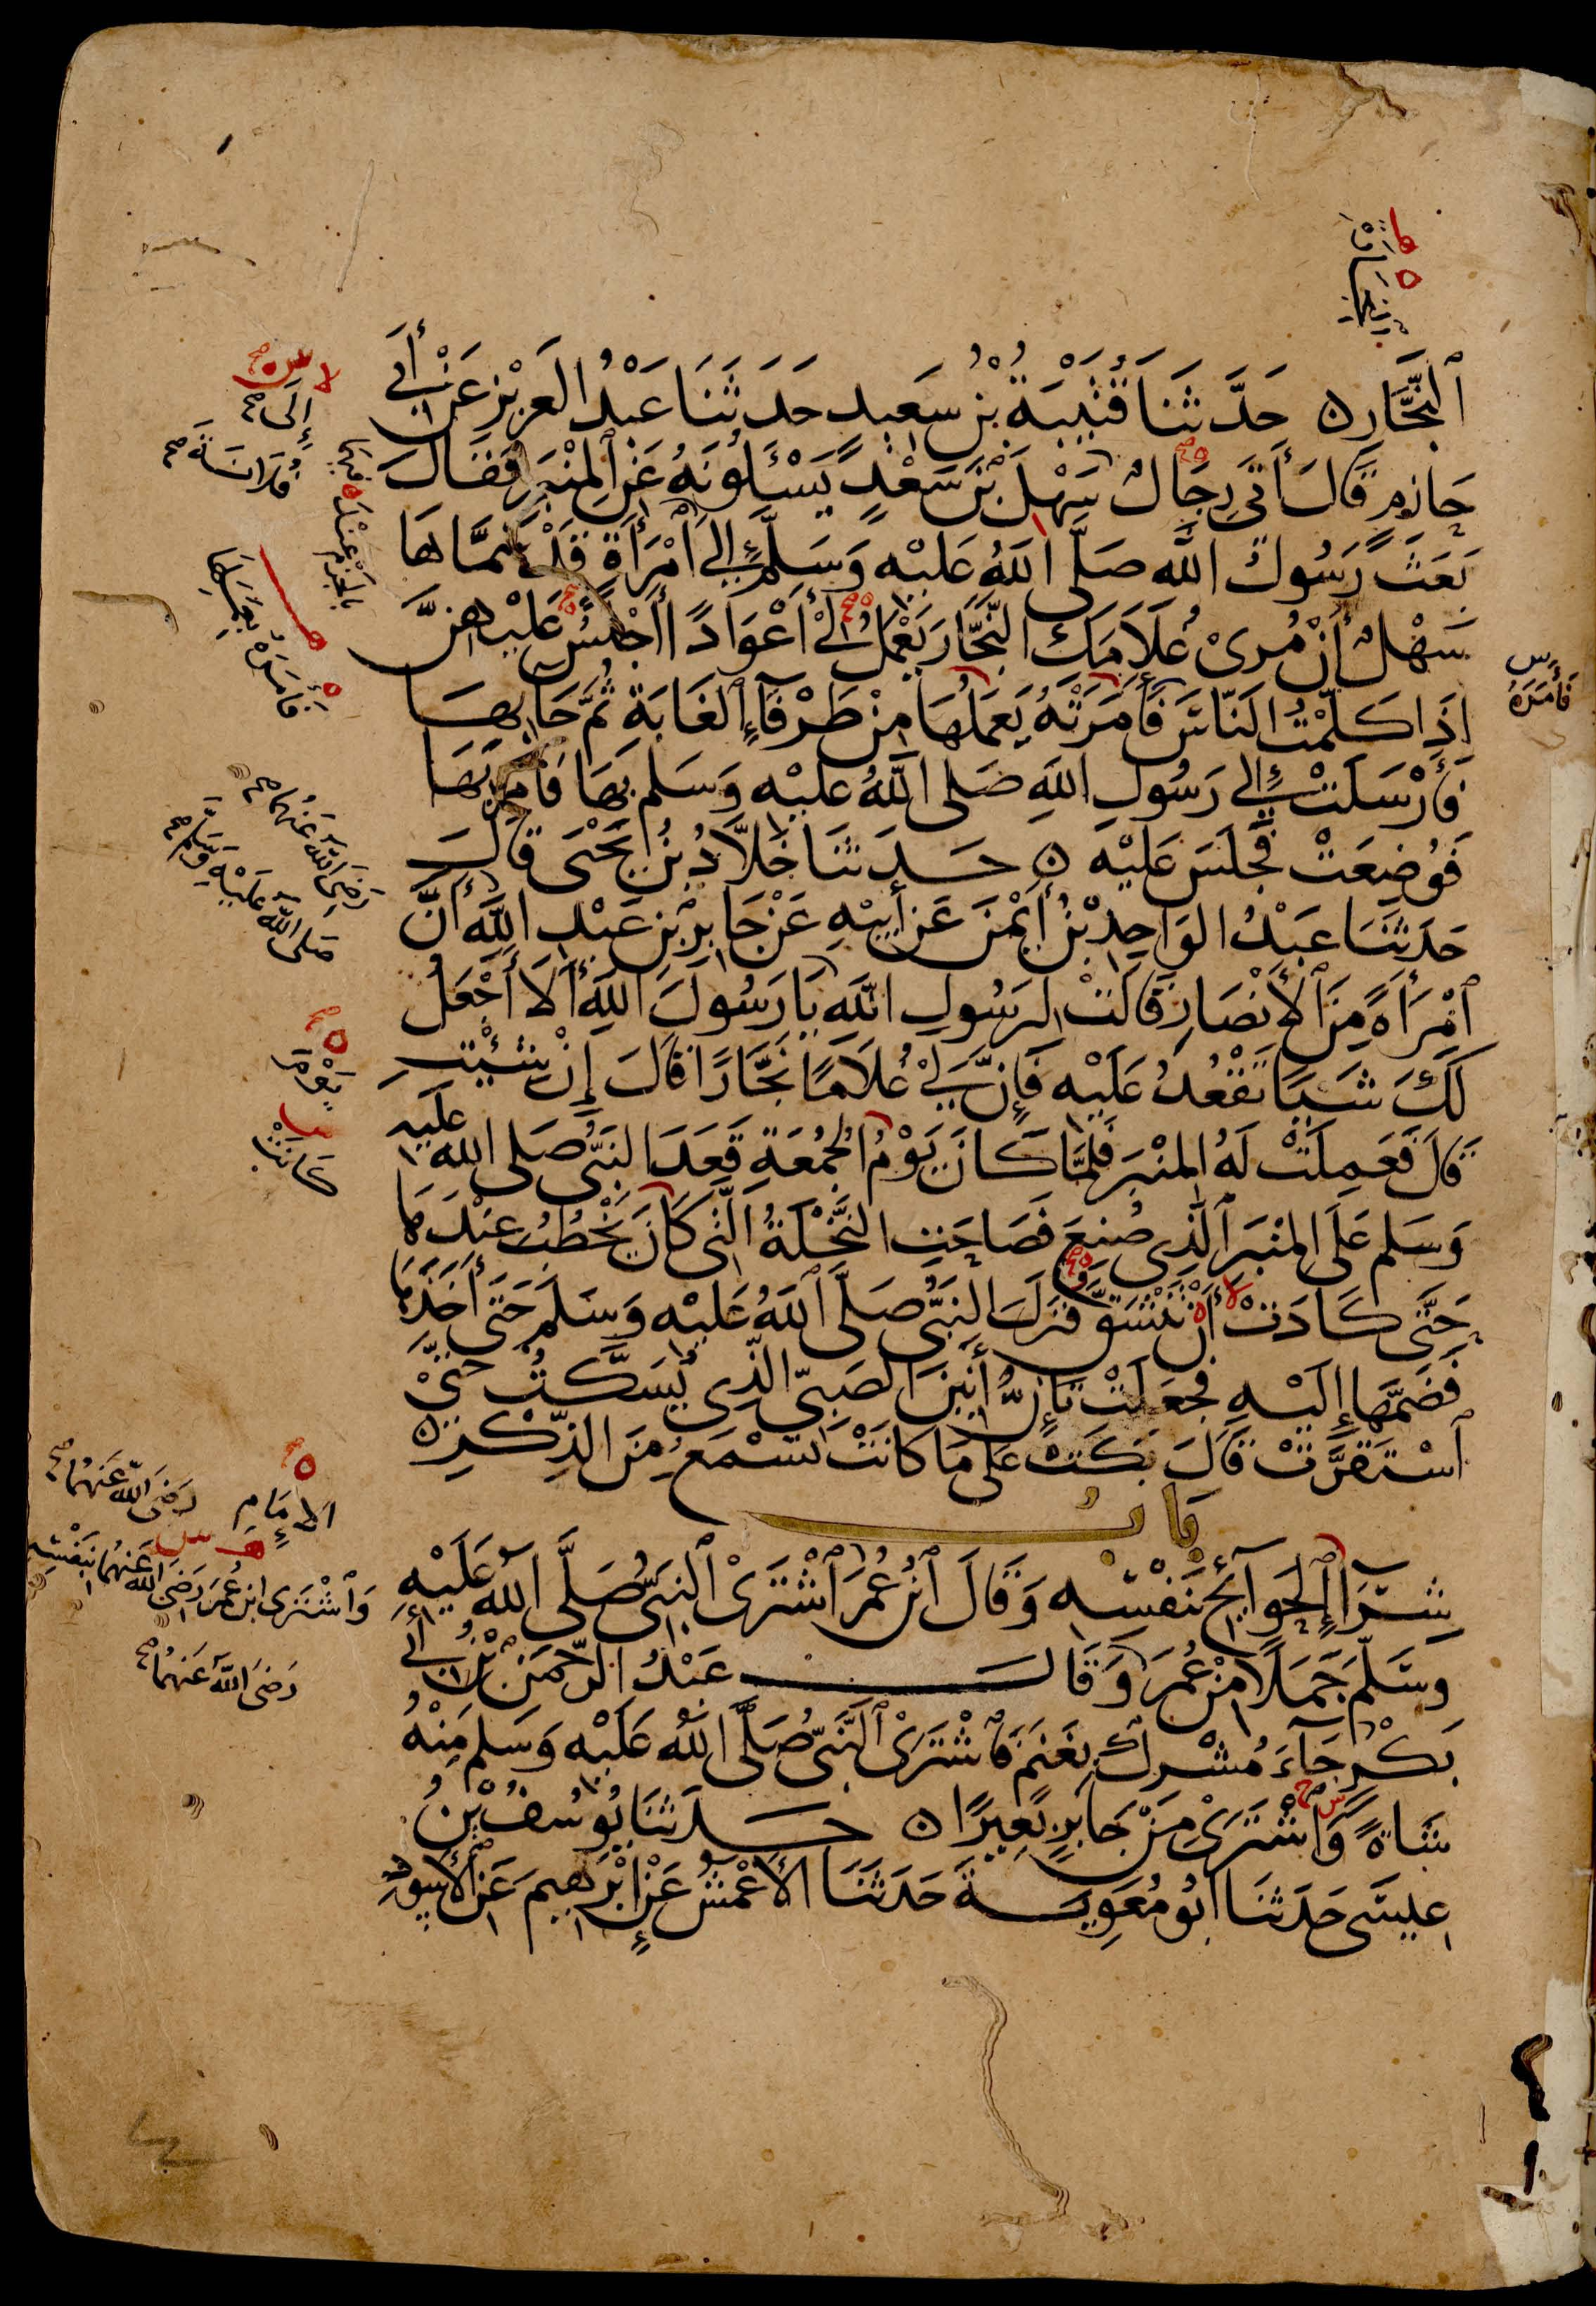 النِّجَارَةِ
ٱلنَّجَّارِ ۝ حَدَّثَنَا قُتَيْبَةُ بْنُ سَعِيدٍ حَدَّثَنَا عَبْدُ العَزِيزِ عَنْ أَبِي
حَازِمٍ قَالَ أَتَى رِجَالٌ سَهْلَ بْنَ سَعْدٍ يَسْئَلُونَهُ عَنِ الْمِنْبَرِ فَقَالَ
بَعَثَ رَسُولُ اللهِ صَلَّى اللهُ عَلَيْهِ وَسَلَّمَ إِلَى امْرَأَةٍ قَدْ سَمَّاهَا
سَهْلٌ أَنْ مُرِى غُلَامَكِ النَّجَّارَ يَعْمَلُ لِي أَعْوَادًا أَجْلِسُ عَلَيْهِنَّ
إِذَا كَلَّمْتُ النَّاسَ فَأَمَرَتْهُ يَعْمَلُهَا مِنْ طَرْفَآءِ الغَابَةِ ثُمَّ جَا بِهَا
فَأَرْسَلَتْ إِلَى رَسُولِ اللهِ صَلَّى اللهُ عَلَيْهِ وَسَلَّم بِهَا فَأَمَرَ بِهَا
فَوُضِعَتْ فَجَلَسَ عَلَيْهِ ۝ حَدَّثَنَا خَلَّادُ بْنُ يَحْيَى قَالَ
حَدَّثَنَا عَبْدُ الوَاحِدِ بْنُ أَيْمَنَ عَنْ أَبِيهِ عَنْ جَابِرِ بْنِ عَبْدِ اللهِ أَنَّ
ٱمْرَأَةً مِنَ ٱلْأَنْصَارِ قَالَتْ لِرَسُولِ اللهِ يَا رَسُولَ اللهِ أَلَا أَجْعَلُ
لَكَ شَيْئًا تَقْعُدُ عَلَيْهِ فَإِنَّ لِي غُلَامًا نَجَّارًا قَالَ إِنْ شِئْتِ
قَالَ فَعَمِلَتْ لَهُ المِنْبَرَ فَلَمَّا كَانَ يَوْمُ الْجُمُعَةِ قَعَدَ النَّبِىُّ صَلَّى الله عَلَيْهِ
وَسَلَّم عَلَى المِنْبَرِ ٱلَّذِى صُنِعَ فَصَاحَتِ النَّخْلَةُ الَّتِى كَانَ يَخْطُبُ عِنْدَهَا
حَتَّى كَادَتْ أَنْ تَنْشَقَّ فَنَزَلَ النَّبِىُّ صَلَّى ٱللهُ عَلَيْهِ وَسَلَّمَ حَتَّى أَخَذَهَا
فَضَمَّهَا إِلَيْهِ فَجَعَلَتْ تَئِنُّ أَنِينَ الصَّبِىِّ الَّذِى يُسَكَّتُ حَتَّى
ٱسْتَقَرَّتْ قَالَ بَكَتْ عَلَى مَا كَانَتْ تَسْمَعُ مِنَ الذِّكْرِ ۝
بَابُ
شِرَآءِ ٱلْحَوَآئِجِ بِنَفْسِهِ وَقَالَ ٱبْنُ عُمَرَ ٱشْتَرَىْ ٱلنَّبِىُّ صَلَّى ٱللهُ عَلَيْهِ
وَسَلَّمَ جَمَلًا مِنْ عُمَرَ وَقَالَ عَبْدُ الرَّحْمَنِ بْنُ أَبِي
بَكْرٍ جَآءَ مُشْرِكٌ بِغَنَمٍ فَاشْتَرَىْ ٱلنَّبِىُّ صَلَّى اللهُ عَلَيْهِ وَسَلَّم مِنْهُ
شَاةً وَٱشْتَرَىْ مِنْ جَابِرٍ بَعِيرًا ۝ حَدَّثَنَا يُوسُفُ بْنُ
عِيسَى حَدَّثَنَا أَبُو مُعَوِيَةَ حَدَّثَنَا الأَعْمَشُ عَنْ إِبْرَهِيمَ عَنِ الأَسْوَدِ
إِلَى
فُلَانَةَ
فَأَمَرَهُ
فَأَمَرَتْهُ بِعَمَلِهَا
رَضِىَ اللهُ عَنْهُمَا
صلى اللهُ عَلَيْهِ وَسَلَّم
يَوْمَ
كَانَتْ
رَضِىَ اللهُ عَنْهُمَا
الإِمَامِ
وَٱشْتَرَى ابْنُ عُمَرَ رَضِىَ اللهُ عَنْهُمَا بِنَفْسِهِ
رَضِىَ اللهُ عَنْهُمَا